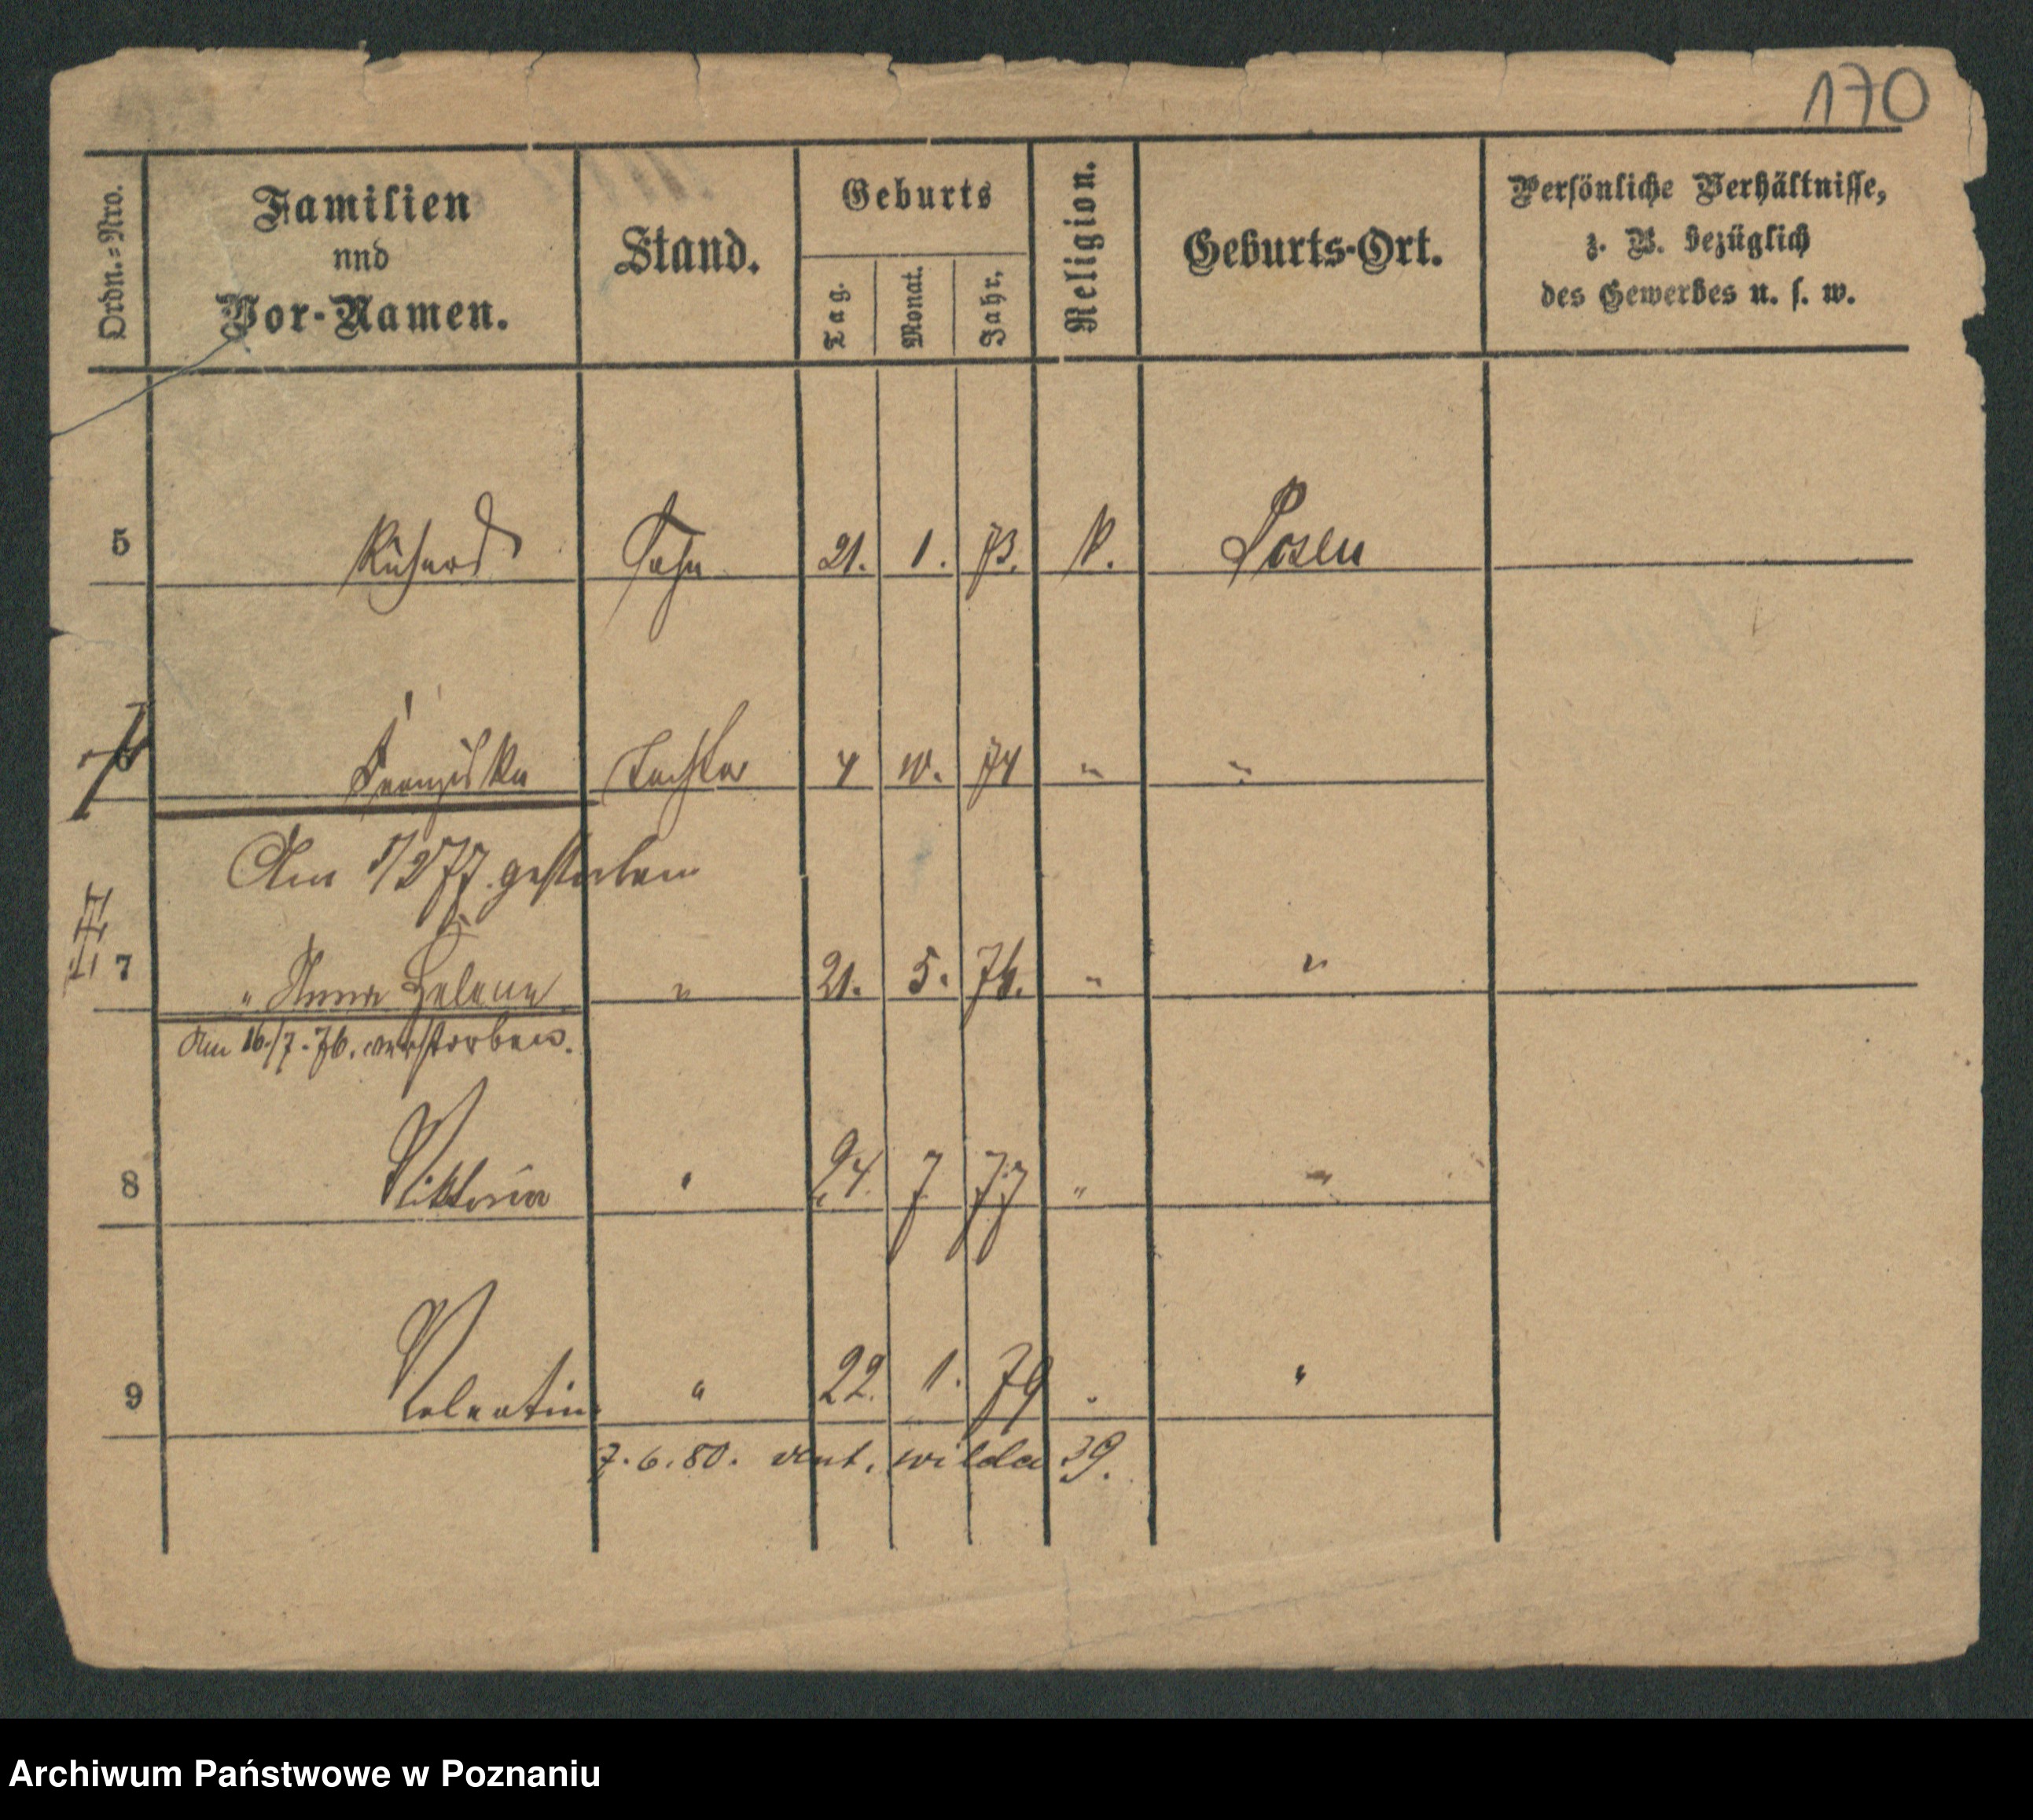 170
Ordn.=Nro.
Familien
und
Vor-Namen.
Stand.
Geburts
Tag.
Monat.
Jahr.
Religion.
Geburts-Ort.
Persönliche Verhältnisse,
z. B. bezüglich
des Gewerbes u. s. w.
5 Richard Sohn 21. 1. 73. k. Posen
6 Franziska Tochter 4 10. 74 " "
Am 1/2 77. gestorben
7 " Anna Helene " 21. 5. 76. " "
Am 16./7. 76. verstorben.
8 Viktoria " 24. 7 77 " "
9 Valentin " 22. 1. 79 " "
7. 6. 80. wilda 39.
Archiwum Państwowe w Poznaniu